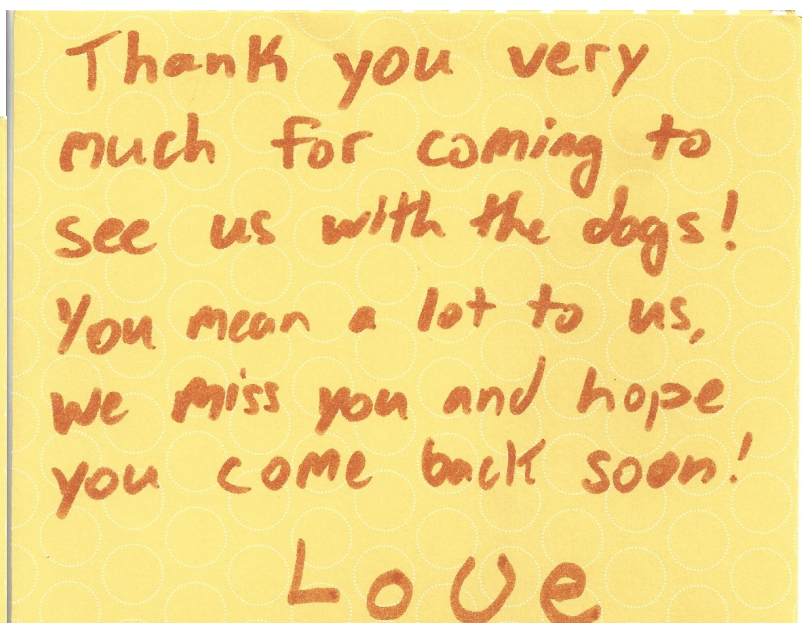 Thank you very
much for coming to
see us with the dogs!
You mean a lot to us,
we miss you and hope
you come back soon!
Love